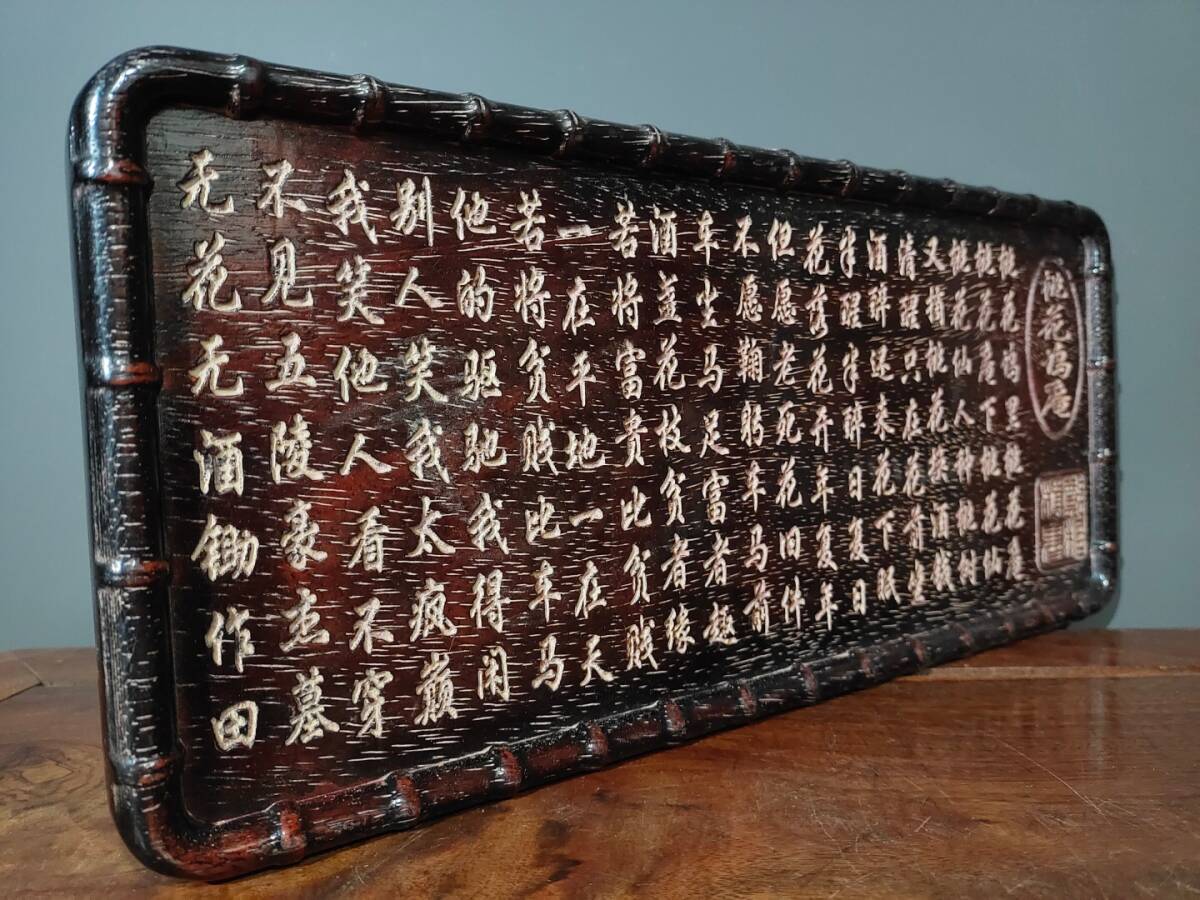 桃花坞庵
桃花坞里桃花庵
桃花庵下桃花仙
桃花仙人种桃树
又摘桃花换酒钱
清醒只在花前坐
酒醉还来花下眠
半醒半醉日复日
花落花开年复年
但愿老死花旧件
不愿鞠躬车马前
车尘马足富者趣
酒盏花枝贫者缘
若将富贵比贫贱
一在平地一在天
若将贫贱比车马
他的驱驰我得闲
别人笑我太疯巅
我笑他人看不穿
不见五陵豪杰墓
无花无酒锄作田